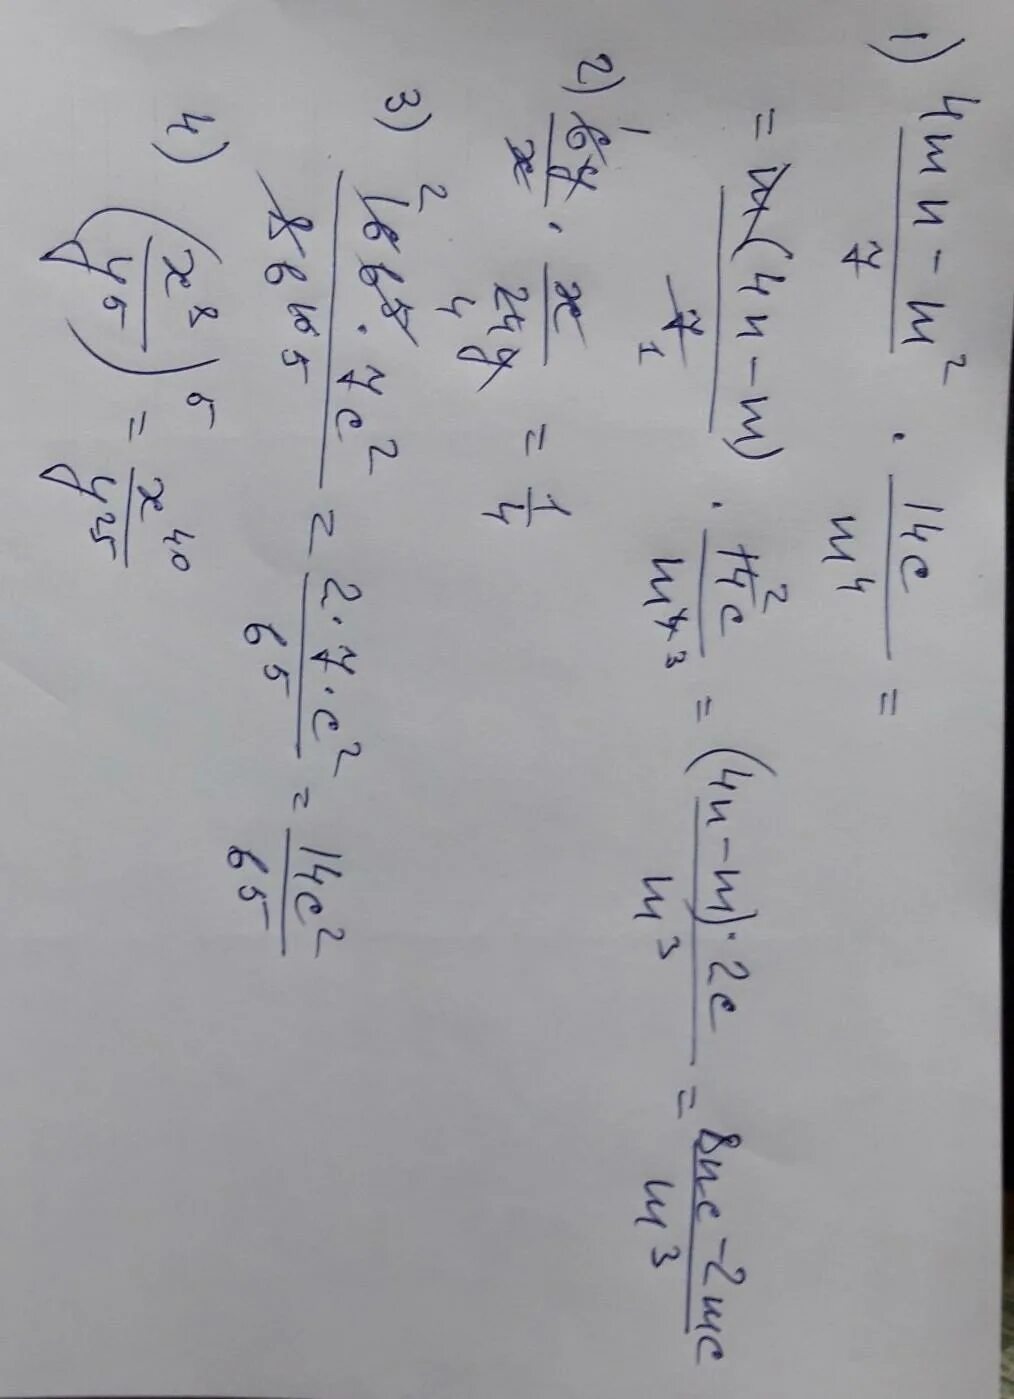 1) (4mn - m²)/7 · 14c/m⁴ =
= m(4n - m)/7 1 · 14 2 c/m⁴ ³ = (4n - m) · 2c/m³ = 8nc - 2mc/m³
2) 1 6y/x · x/24y 4 = 1/4
3) 2 16b⁵ · 7c²/8b¹⁰ ⁵ = 2 · 7 · c²/b⁵ = 14c²/b⁵
4) (x⁸/y⁵)⁵ = x⁴⁰/y²⁵